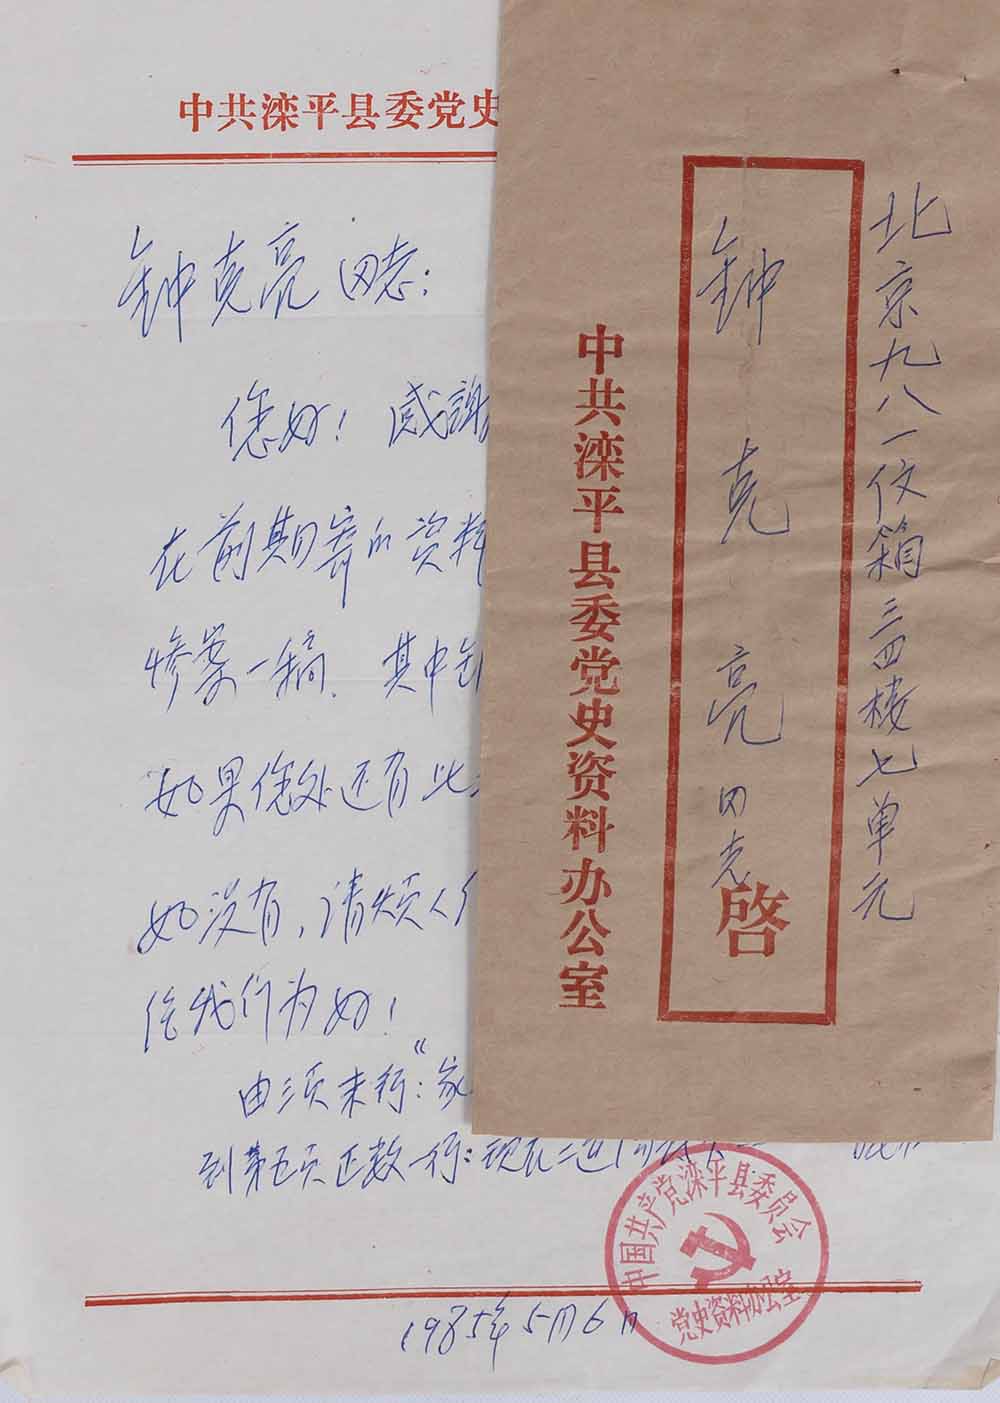 中共滦平县委党史
钟克亮同志：
您好！感謝
在前期寄的资料
惨案一稿、其中缺
如果您处还有此
如没有，请烦人
给我们为好！
由三页末行：“家
到第五页正数一行：现在
1985年5月6日
中国共产党滦平县委员会
党史资料办公室
北京九八一信箱三四楼七单元
钟克亮同志
啓
中共滦平县委党史资料办公室